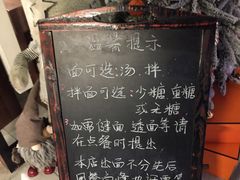 温馨提示
面可选:汤.拌
拌面可选:少糖 重糖
或无糖
加面 硬面 烂面等请
在点餐时提出
本店出面不分先后